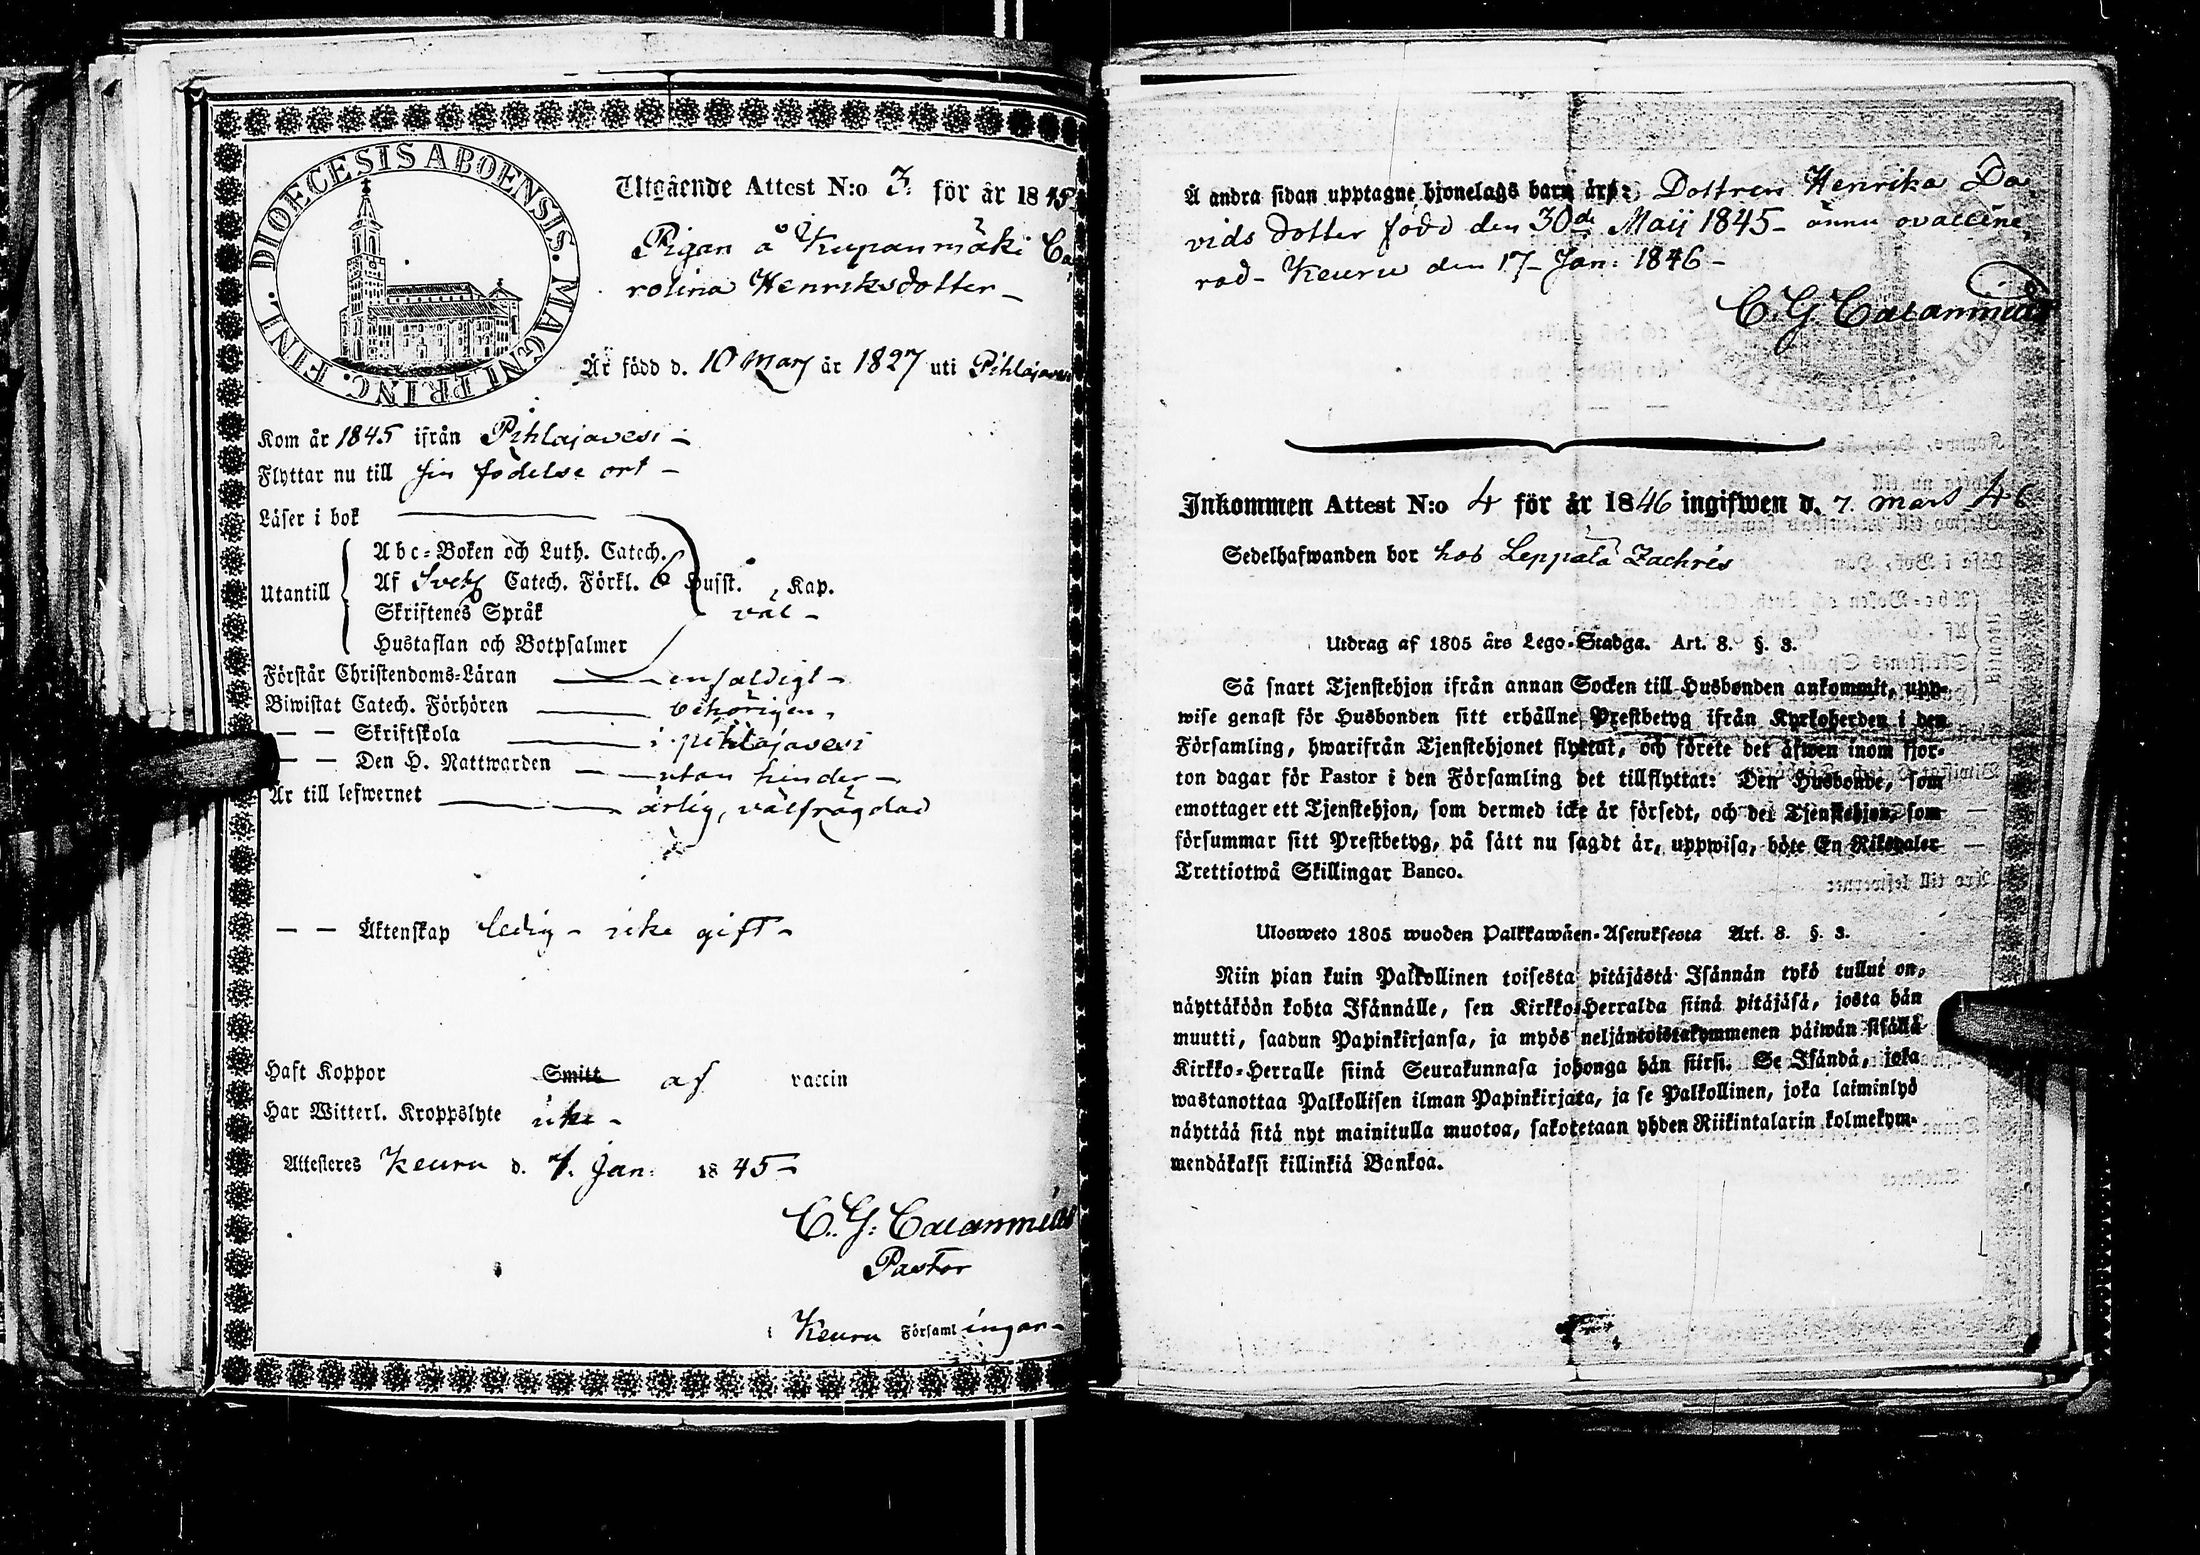 DIOECESIS ABOENSIS. MAGNI PRINC. FINL.
Utgående Attest N:o 3. för år 1845
Pigan å Kupanmäki Ca
rolina Henriksdotter
Är född d. 10 Mars år 1827 uti Pihlajavesi
Kom år 1845 ifrån Pihlajavesi -
Flyttar nu till sin födelse ort -
Läser i bok
Utantill
Abc-Boken och Luth. Catech.
Af Sveb. Catech. Förkl. 6 Husst. Kap.
Skriftenes Språk väl -
Hustaflan och Botpsalmer
Förstår Christendoms-Läran enfaldigt -
Biwistat Catech. Förhören behörigen,
— — Skriftskola i pihlajavesi
— — Den H. Nattwarden utan hinder -
Är till lefwernet ärlig, välfrägdad
— — Äktenskap ledig - icke gift -
Haft Koppor Smitt af vaccin
Har Witterl. Kroppslyte icke -
Attesteres Keuru d. Jan: 1845 -
C. G. Calamnius
Pastor
i Keuru Församlingar -
Å andra sidan upptagne hjonelags barn äro: Dottren Henrika Da
vids dotter född den 30de Maij 1845 - ännu ovaccine
rad - Keuru den 17 - Jan: 1846 -
C. G. Calamnius
Inkommen Attest N:o 4 för år 1846 ingifwen d. 7. Mars 46
Sedelhafwanden bor hos Leppälä Zachris
Utdrag af 1805 års Lego-Stadga. Art. 8. §. 3.
Så snart Tjenstehjon ifrån annan Socken till Husbonden ankommit, upp-
wise genast för Husbonden sitt erhållne Prestbetyg ifrån Kyrkoherden i den
Församling, hwarifrån Tjenstehjonet flyttat, och förete det äfwen inom fjor-
ton dagar för Pastor i den Församling det tillflyttat: Den Husbonde, som
emottager ett Tjenstehjon, som dermed icke är försedt, och det Tjenstehjon, som
försummar sitt Prestbetyg, på sätt nu sagdt är, uppwisa, böte En Riksdaler
Trettiotwå Skillingar Banco.
Ulosweto 1805 wuoden Palkkawäen-Asetuksesta Art. 8. §. 3.
Niin pian kuin Palkollinen toisesta pitäjästä Isännän tykö tullut on,
näyttäköön kohta Isännälle, sen Kirkko-Herralda siinä pitäjäsä, josta hän
muutti, saadun Papinkirjansa, ja myös neljäntoistakymmenen päiwän sisällä
Kirkko-Herralle siinä Seurakunnasa johonga hän siirsi. Se Isändä, joka
wastanottaa Palkollisen ilman Papinkirjata, ja se Palkollinen, joka laiminlyö
näyttää sitä nyt mainitulla muotoa, sakotetaan yhden Riikintalarin kolmekym-
mendäkaksi killinkiä Bankoa.